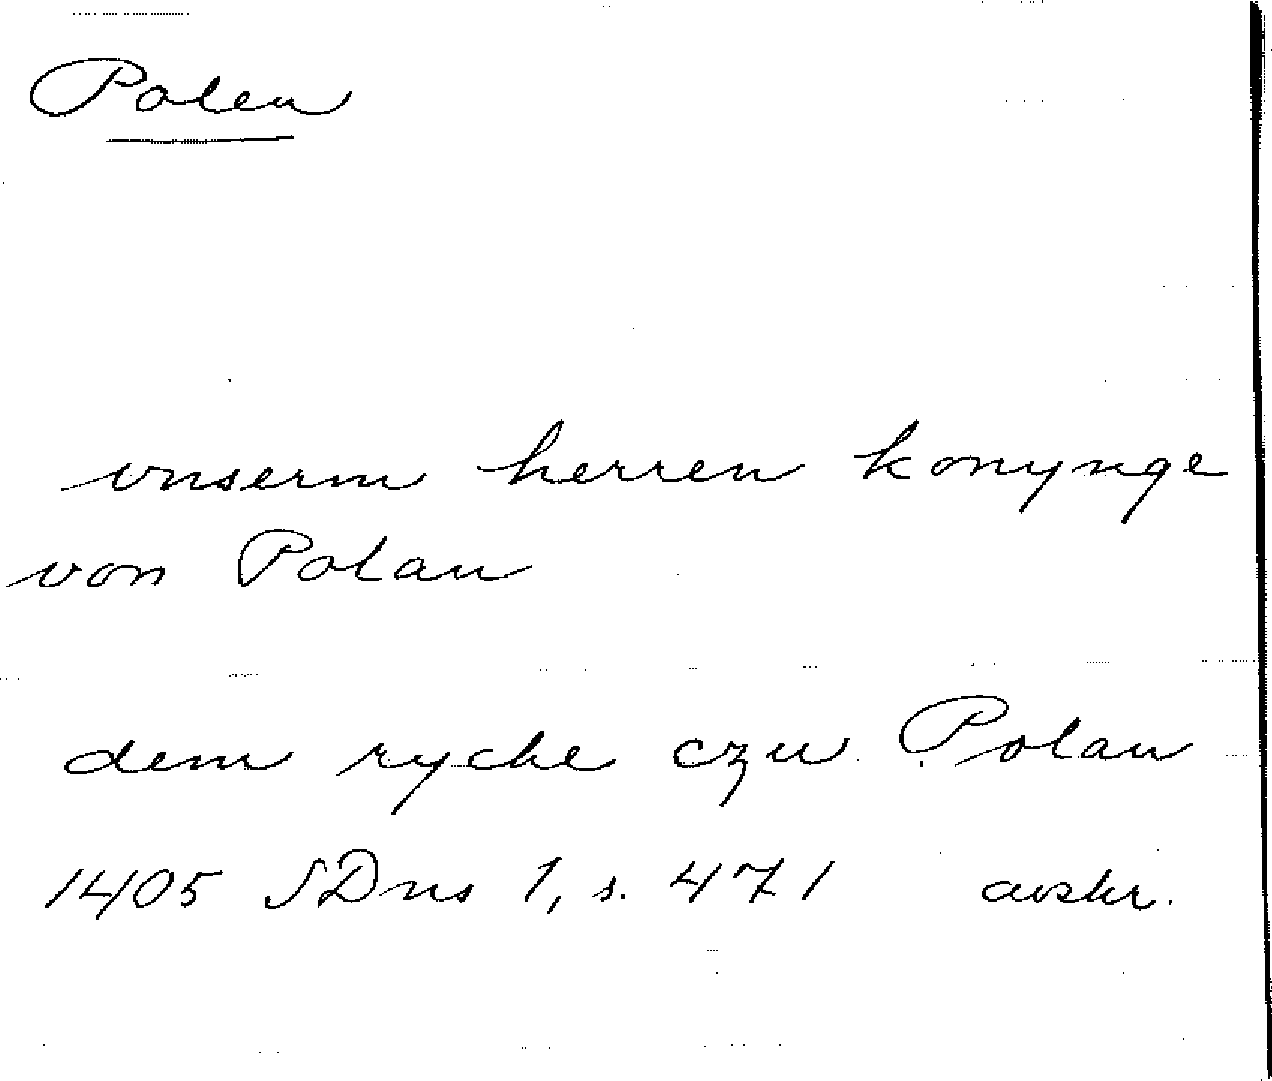 Polen
vnserm herren konynge
von Polan
dem ryche czu Polan
1405 SDns 1, s. 471 avskr.